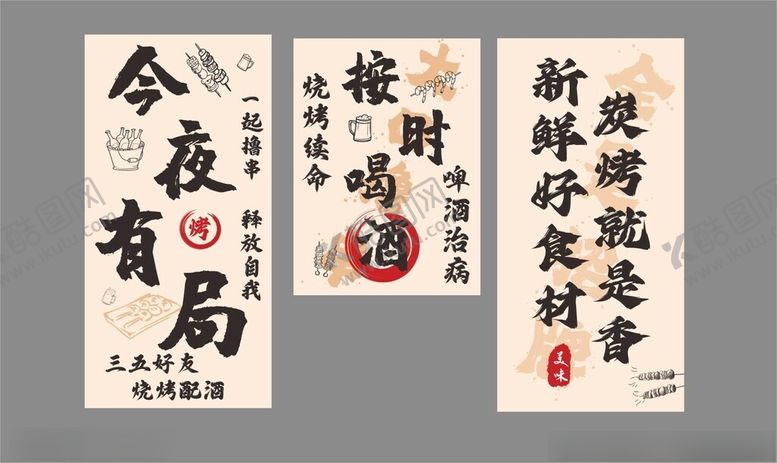 今夜有局
一起撸串
释放自我
烤
三五好友
烧烤配酒
按时喝酒
烧烤续命
啤酒治病
新鲜好食材
炭烤就是香
美味